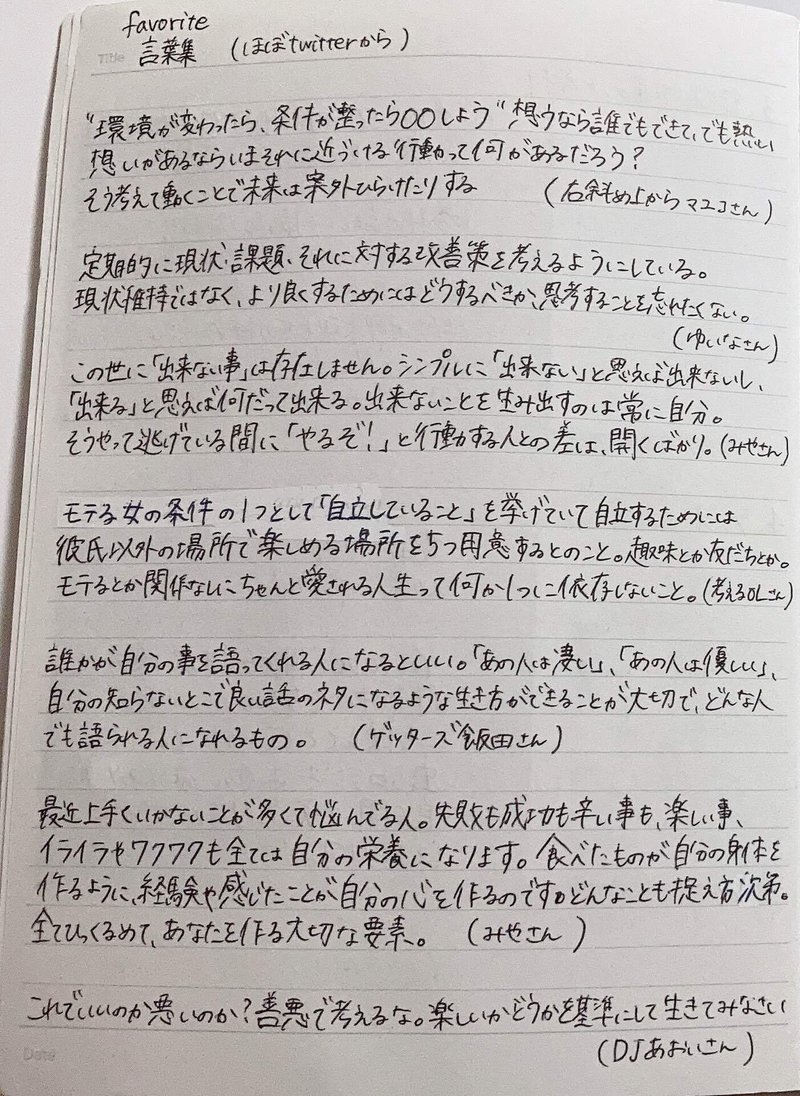 favorite
Title 言葉集 (ほぼtwitterから)
"環境が変わったら、条件が整ったら〇〇しよう"想うなら誰でもできて、でも熱い
想いがあるならいまそれに近づける行動って何があるだろう?
そう考えて動くことで未来は案外ひらけたりする (右斜め上から マユコさん)
定期的に現状・課題・それに対する改善策を考えるようにしている。
現状維持ではなく、より良くするためにはどうするべきか、思考することを忘れたくない。
(ゆいなさん)
この世に「出来ない事」は存在しません。シンプルに「出来ない」と思えば出来ないし、
「出来る」と思えば何だって出来る。出来ないことを生み出すのは常に自分。
そうやって逃げている間に「やるぞ!」と行動する人との差は、開くばかり。(みやさん)
モテる女の条件の1つとして「自立していること」を挙げていて自立するためには
彼氏以外の場所で楽しめる場所を5つ用意するとのこと。趣味とか友だちとか。
モテるとか関係なしにちゃんと愛される人生って何か1つに依存しないこと。(考えるOLさん)
誰かが自分の事を語ってくれる人になるといい。「あの人は凄い」、「あの人は優しい」、
自分の知らないとこで良い話のネタになるような生き方ができることが大切で、どんな人
でも語られる人になれるもの。 (ゲッターズ飯田さん)
最近上手くいかないことが多くて悩んでる人。失敗も成功も辛い事も、楽しい事、
イライラやワクワクも全ては自分の栄養になります。食べたものが自分の身体を
作るように、経験や感じたことが自分の心を作るのです。どんなことも捉え方次第。
全てひっくるめて、あなたを作る大切な要素。 (みやさん)
これでいいのか悪いのか?善悪で考えるな。楽しいかどうかを基準にして生きてみなさい
Date (DJあおいさん)